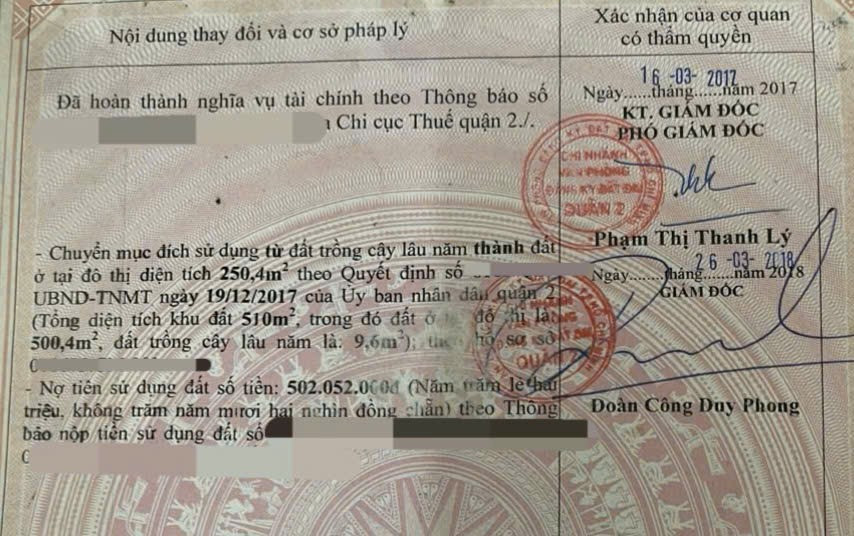 Nội dung thay đổi và cơ sở pháp lý
Xác nhận của cơ quan
có thẩm quyền
Đã hoàn thành nghĩa vụ tài chính theo Thông báo số
Chi cục Thuế quận 2./.
16 -03- 2017
Ngày......tháng......năm 2017
KT. GIÁM ĐỐC
PHÓ GIÁM ĐỐC
CHI NHÁNH
VĂN PHÒNG
ĐĂNG KÝ ĐẤT ĐAI
QUẬN 2
Phạm Thị Thanh Lý
- Chuyển mục đích sử dụng từ đất trồng cây lâu năm thành đất
ở tại đô thị diện tích 250,4m² theo Quyết định số
UBND-TNMT ngày 19/12/2017 của Ủy ban nhân dân quận 2
(Tổng diện tích khu đất 510m², trong đó đất ở đô thị là:
500,4m², đất trồng cây lâu năm là: 9,6m²); hồ sơ số
- Nợ tiền sử dụng đất số tiền: 502.052.000đ (Năm trăm lẻ hai
triệu, không trăm năm mươi hai nghìn đồng chẵn) theo Thông
báo nộp tiền sử dụng đất số
26 -03- 2018
Ngày......tháng......năm 2018
GIÁM ĐỐC
QUẬN
Đoàn Công Duy Phong